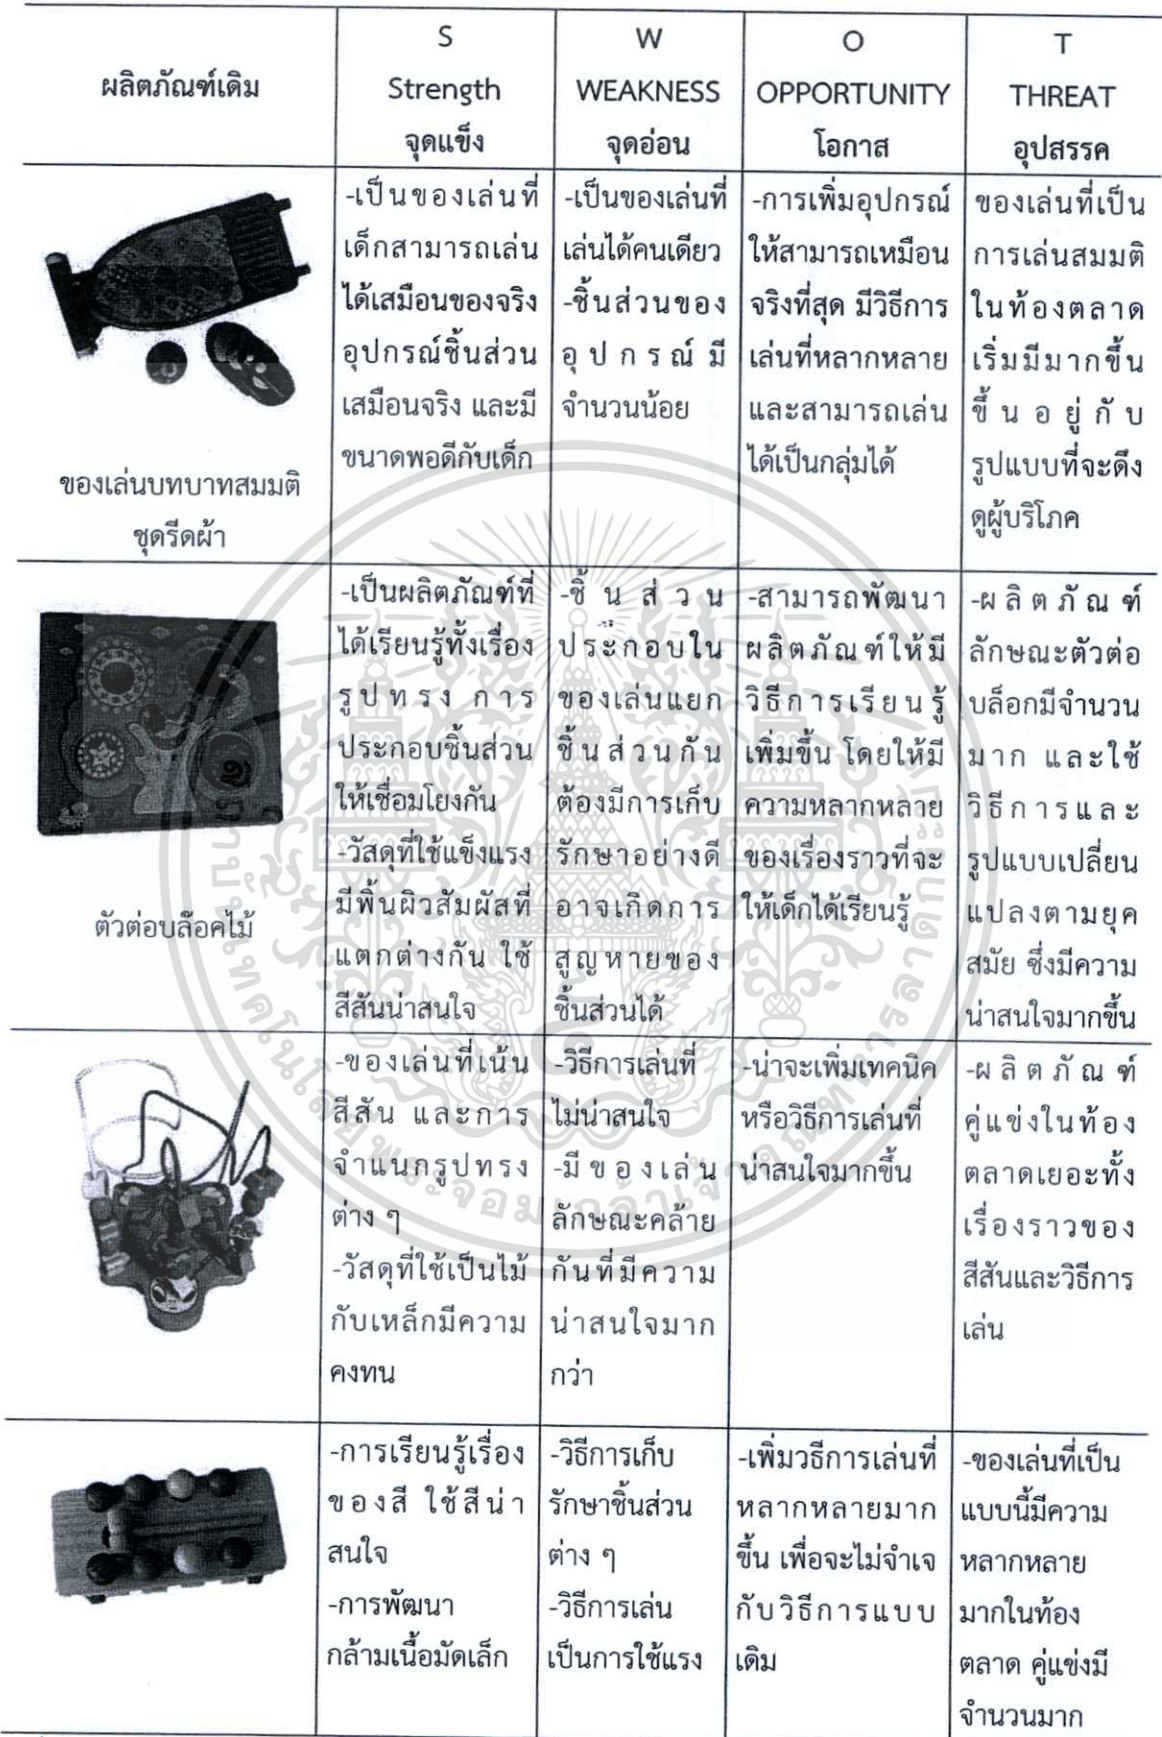 ผลิตภัณฑ์เดิม
S
Strength
จุดแข็ง
W
WEAKNESS
จุดอ่อน
O
OPPORTUNITY
โอกาส
T
THREAT
อุปสรรค
ของเล่นบทบาทสมมติ
ชุดรีดผ้า
-เป็นของเล่นที่
เด็กสามารถเล่น
ได้เสมือนของจริง
อุปกรณ์ชิ้นส่วน
เสมือนจริง และมี
ขนาดพอดีกับเด็ก
-เป็นของเล่นที่
เล่นได้คนเดียว
-ชิ้นส่วนของ
อุปกรณ์มี
จำนวนน้อย
-การเพิ่มอุปกรณ์
ให้สามารถเหมือน
จริงที่สุด มีวิธีการ
เล่นที่หลากหลาย
และสามารถเล่น
ได้เป็นกลุ่มได้
ของเล่นที่เป็น
การเล่นสมมติ
ในท้องตลาด
เริ่มมีมากขึ้น
ขึ้นอยู่กับ
รูปแบบที่จะดึง
ดูผู้บริโภค
ตัวต่อบล๊อคไม้
-เป็นผลิตภัณฑ์ที่
ได้เรียนรู้ทั้งเรื่อง
รูปทรง การ
ประกอบชิ้นส่วน
ให้เชื่อมโยงกัน
-วัสดุที่ใช้แข็งแรง
มีพื้นผิวสัมผัสที่
แตกต่างกัน ใช้
สีสันน่าสนใจ
-ชิ้นส่วน
ประกอบใน
ของเล่นแยก
ชิ้นส่วนกัน
ต้องมีการเก็บ
รักษาอย่างดี
อาจเกิดการ
สูญหายของ
ชิ้นส่วนได้
-สามารถพัฒนา
ผลิตภัณฑ์ให้มี
วิธีการเรียนรู้
เพิ่มขึ้น โดยให้มี
ความหลากหลาย
ของเรื่องราวที่จะ
ให้เด็กได้เรียนรู้
-ผลิตภัณฑ์
ลักษณะตัวต่อ
บล็อกมีจำนวน
มาก และใช้
วิธีการและ
รูปแบบเปลี่ยน
แปลงตามยุค
สมัย ซึ่งมีความ
น่าสนใจมากขึ้น
-ของเล่นที่เน้น
สีสัน และการ
จำแนกรูปทรง
ต่าง ๆ
-วัสดุที่ใช้เป็นไม้
กับเหล็กมีความ
คงทน
-วิธีการเล่นที่
ไม่น่าสนใจ
-มีของเล่น
ลักษณะคล้าย
กันที่มีความ
น่าสนใจมาก
กว่า
-น่าจะเพิ่มเทคนิค
หรือวิธีการเล่นที่
น่าสนใจมากขึ้น
-ผลิตภัณฑ์
คู่แข่งในท้อง
ตลาดเยอะทั้ง
เรื่องราวของ
สีสันและวิธีการ
เล่น
-การเรียนรู้เรื่อง
ของสี ใช้สีน่า
สนใจ
-การพัฒนา
กล้ามเนื้อมัดเล็ก
-วิธีการเก็บ
รักษาชิ้นส่วน
ต่าง ๆ
-วิธีการเล่น
เป็นการใช้แรง
-เพิ่มวิธีการเล่นที่
หลากหลายมาก
ขึ้น เพื่อจะไม่จำเจ
กับวิธีการแบบ
เดิม
-ของเล่นที่เป็น
แบบนี้มีความ
หลากหลาย
มากในท้อง
ตลาด คู่แข่งมี
จำนวนมาก
สถาบันเทคโนโลยีพระจอมเกล้าเจ้าคุณทหารลาดกระบัง